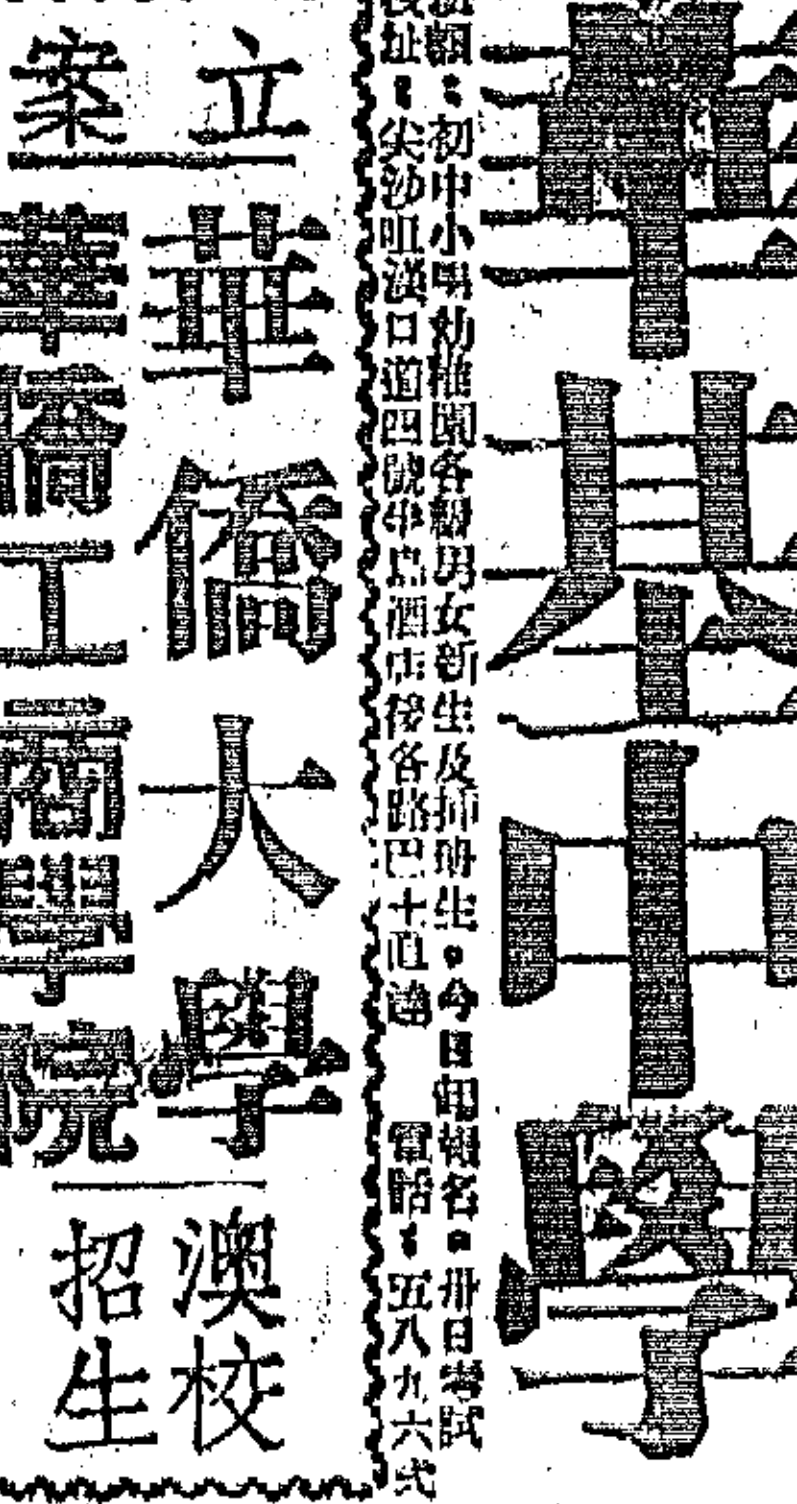 華基中學
初中小學幼稚園各級男女新生及插班生。今日起報名。卅日考試
校址：尖沙咀漢口道四號半島酒店後各路巴士直達 電話：五八九六弍
立案
華僑大學
華僑工商學院
澳校
招生